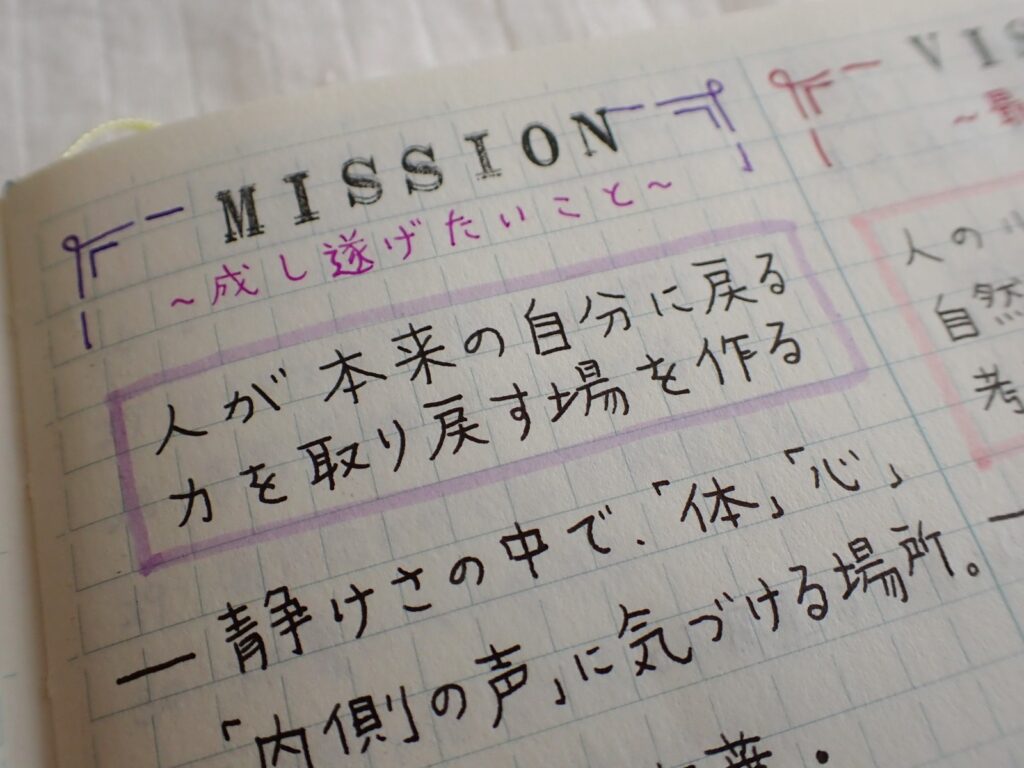 MISSION
~成し遂げたいこと~
人が本来の自分に戻る
力を取り戻す場を作る
― 静けさの中で、「体」「心」
「内側の声」に気づける場所。
VIS
~最
人の
自然
考